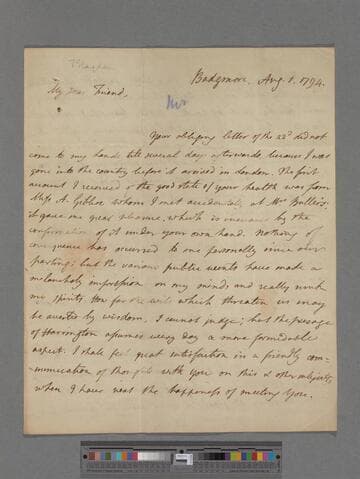 Badgmore. Aug. 1. 1794.
My dear Friend,
Your obliging letter of the 22d did not
come to my hands till several days afterwards, because I was
gone into the country before it arrived in London. The first
account I received of the good state of your health was from
Miss A. whom I met accidentally at Mrs
it gave me great pleasure, which is increased by the
confirmation of it under your own hand. Nothing of
consequence has occurred to me personally since our
parting; but the various public events have made a
melancholy impression on my mind, and really sunk
my spirits. How far the evils which threaten us may
be averted by wisdom, I cannot judge; but the presage
of Harrington assumes every day a more formidable
aspect. I shall feel great satisfaction in a friendly com-
munication of thoughts with you on this & other subjects,
when I have next the happiness of meeting you.